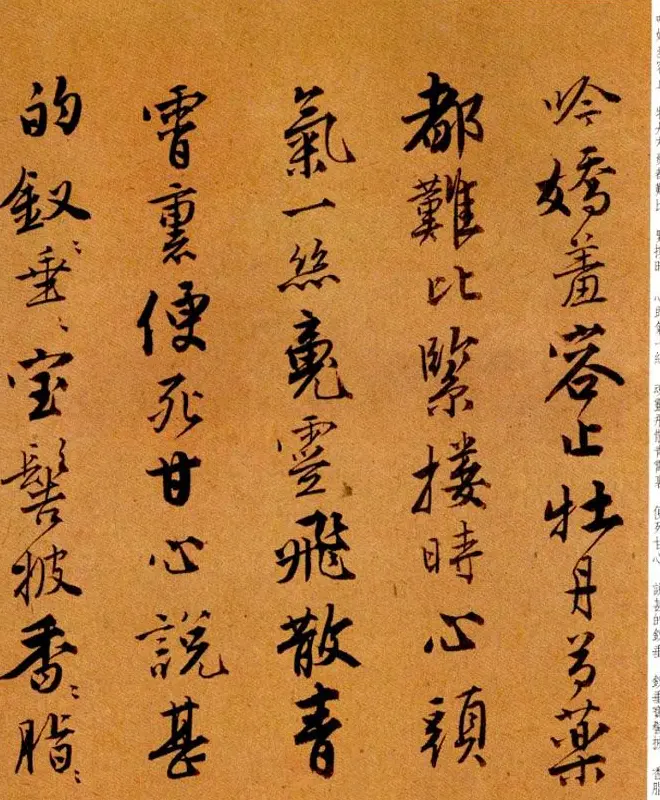 吟嬌羞容止牡丹芍藥
都難比緊摟時心頭
氣一絲魂靈飛散青
霄裏便死甘心說甚
的釵〻垂〻宝髻披香〻脂〻